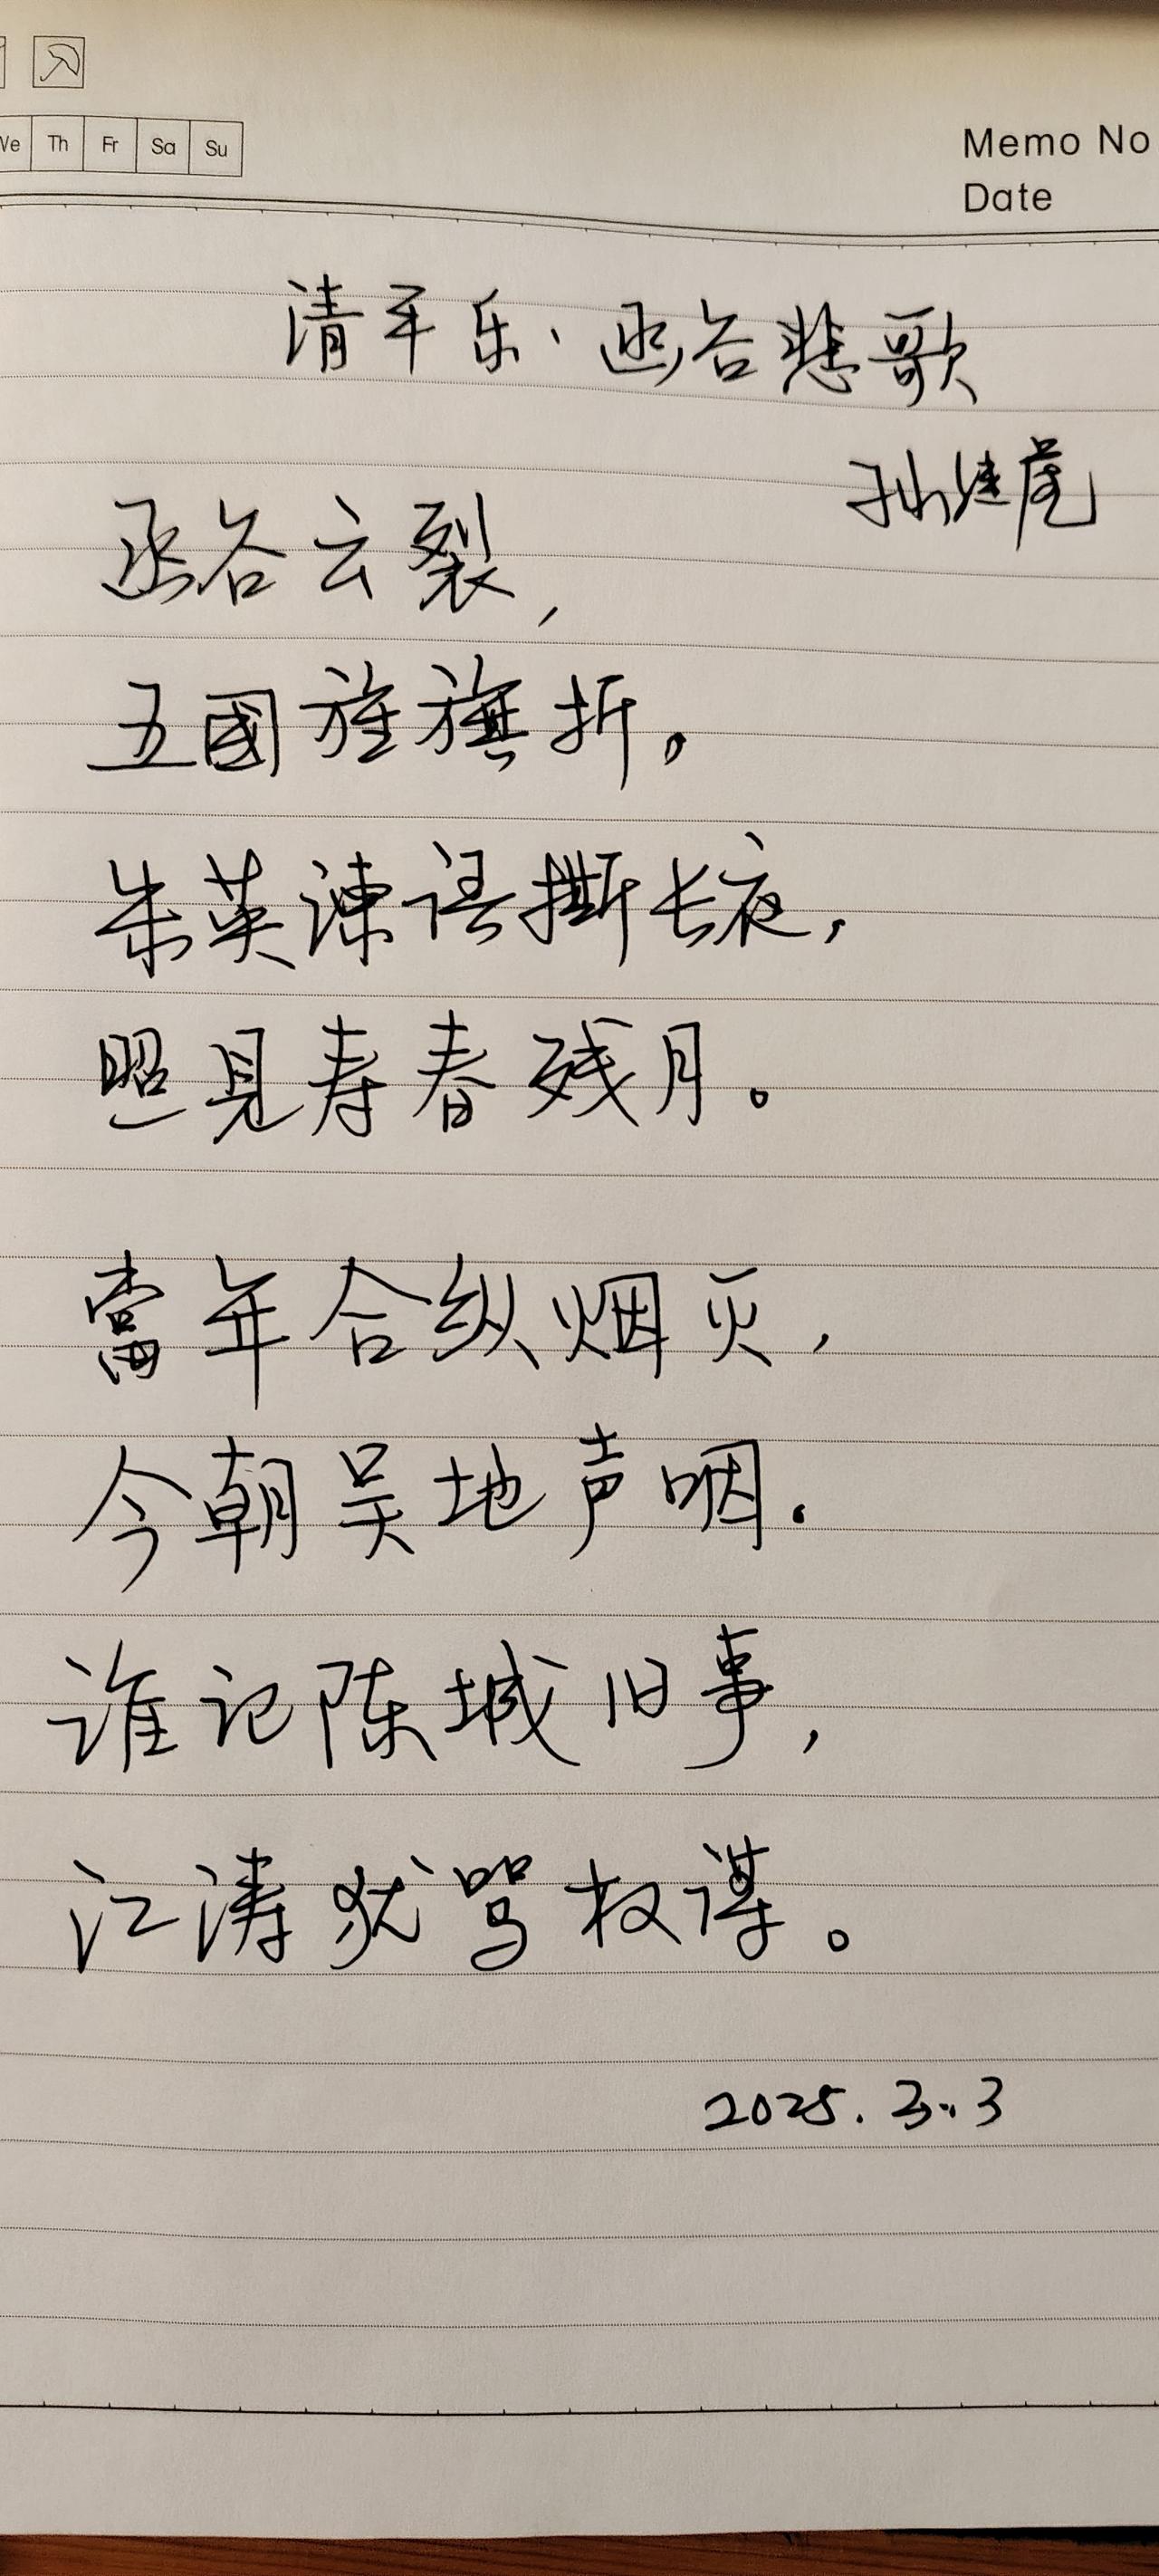 We Th Fr Sa Su
Memo No
Date
清平乐·函谷悲歌
孙建虎
函谷云裂,
五國旌旗折。
朱英諫语撕长夜,
照見寿春残月。
當年合纵烟灭,
今朝吴地声咽.
谁记陈城旧事,
江涛犹骂权谋。
2025.3.3